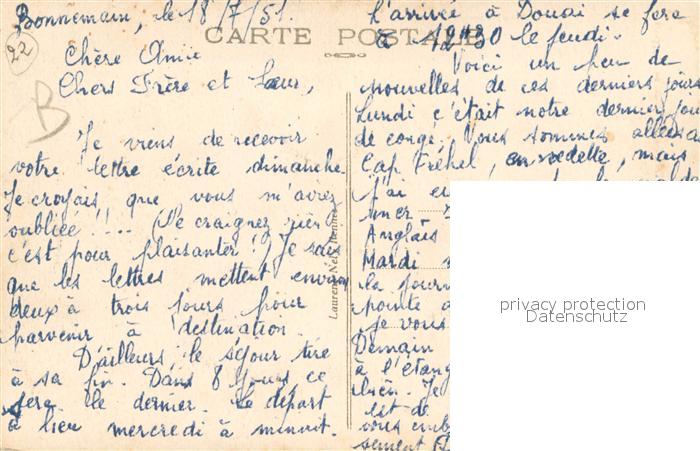 Bonnemain, le 18/7/51.
CARTE POSTALE
22
B
Chère Amie
Chers Frère et Sœur,
Je viens de recevoir
votre lettre écrite dimanche.
Je croyais que vous m'aviez
oubliée!!... (Ne craignez rien
c'est pour plaisanter!) Je sais
que les lettres mettent environ
deux à trois jours pour
parvenir à destination.
D'ailleurs le séjour tire
à sa fin. Dans 8 jours ce
sera le dernier. Le départ
a lieu mercredi à minuit.
Laurent-Nel, Rennes
L'arrivée à Douai se fera
à 12h30 le jeudi.
Voici un peu de
nouvelles de ces derniers jours
Lundi c'était notre dernier jour
de congé. Nous sommes allées a
Cap Fréhel, en vedette, mais
j'ai eu
mer
Anglais
Mardi
la journ
pointe d
je vous
Demain
à l'étang
bien. Je
est de
vous emb
sement
privacy protection
Datenschutz